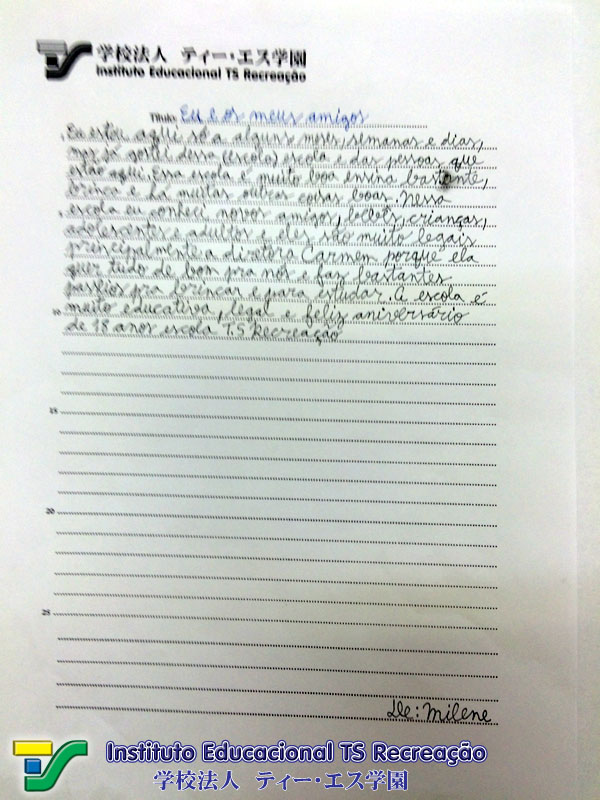 学校法人 ティー・エス学園
Instituto Educacional TS Recreação
Título: Eu e os meus amigos
Eu estou aqui só a alguns meses, semanas e dias,
mas já gostei dessa (escola) escola e das pessoas que
estão aqui. Essa escola é muito boa ensina bastante,
brinca e há muitas outras coisas boas. Nessa
5 escola eu conheci novos amigos, bebês, crianças,
adolescentes e adultos e eles são muito legais
principalmente a diretora Carmem porque ela
quer tudo de bom pra nós e faz bastantes
passeios pra brincar e para estudar. A escola é
10 muito educativa, legal e feliz aniversário
de 18 anos escola T.S Recreação
15
20
25
De: Milene
TS Instituto Educacional TS Recreação
学校法人 ティー・エス学園